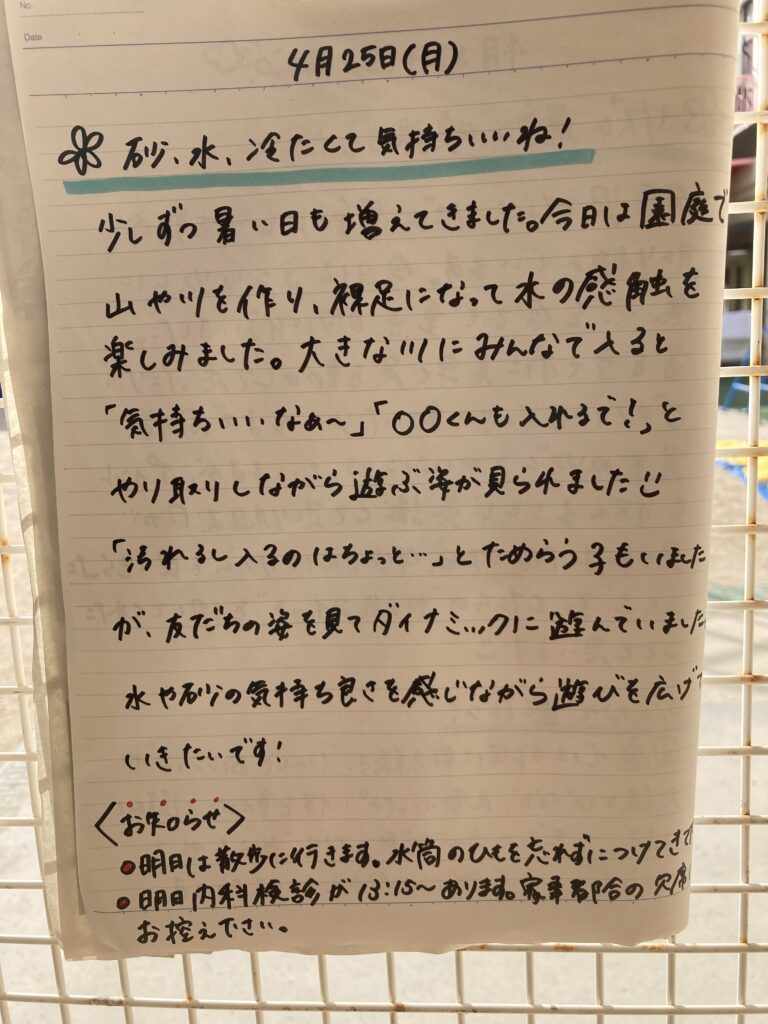 No.
Date
4月25日(月)
砂、水、冷たくて気持ちいいね!
少しずつ暑い日も増えてきました。今日は園庭で
山や川を作り、裸足になって水の感触を
楽しみました。大きな川にみんなで入ると
「気持ちいいなぁ〜」「〇〇くんも入れるで!」と
やり取りしながら遊ぶ姿が見られました
「汚れるし入るのはちょっと…」とためらう子もいました
が、友だちの姿を見てダイナミックに遊んでいました
水や砂の気持ち良さを感じながら遊びを広げて
いきたいです!
〈お知らせ〉
●明日は散歩に行きます。水筒のひもを忘れずにつけてきて
●明日内科検診が13:15〜あります。家事都合の欠席
お控え下さい。